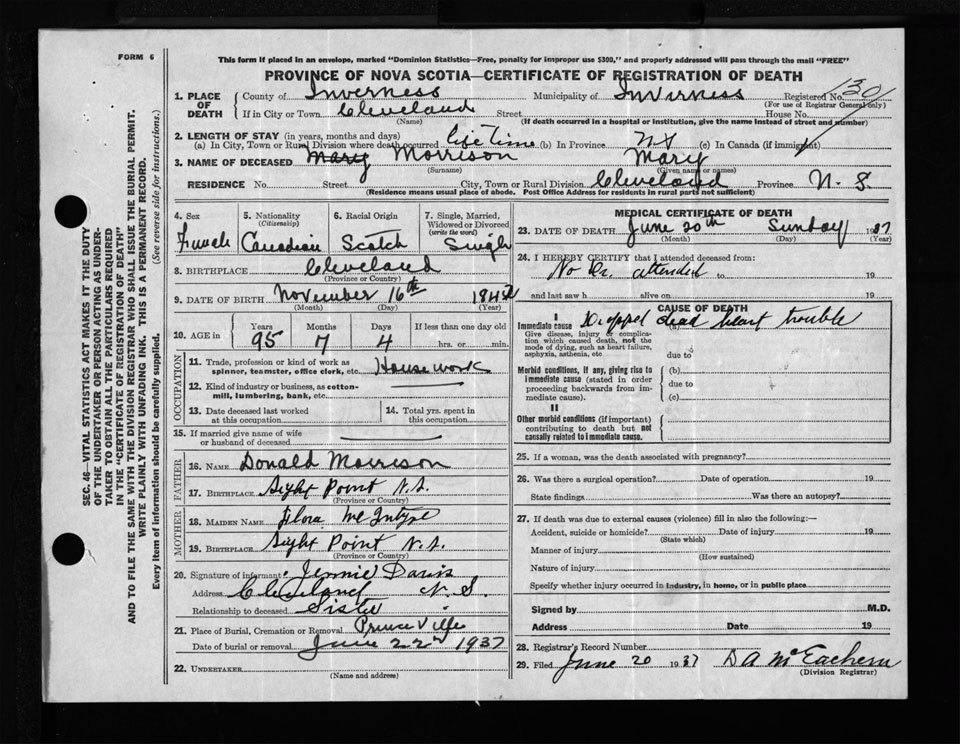 FORM 6
This form if placed in an envelope, marked "Dominion Statistics—Free, penalty for improper use $300," and properly addressed will pass through the mail "FREE"
PROVINCE OF NOVA SCOTIA—CERTIFICATE OF REGISTRATION OF DEATH
1. PLACE OF DEATH
County of Inverness Municipality of Inverness Registered No. 130
(For use of Registrar General only)
If in City or Town Cleveland Street House No.
(Name) (If death occurred in a hospital or institution, give the name instead of street and number)
2. LENGTH OF STAY (in years, months and days)
(a) In City, Town or Rural Division where death occurred life time (b) In Province NS (c) In Canada (if immigrant)
3. NAME OF DECEASED Mary Morrison Mary
(Surname) (Given name or names)
RESIDENCE No. Street City, Town or Rural Division Cleveland Province N. S.
(Residence means usual place of abode. Post Office Address for residents in rural parts not sufficient)
4. Sex 5. Nationality (Citizenship) 6. Racial Origin 7. Single, Married, Widowed or Divorced (write the word)
Female Canadian Scotch Single
8. BIRTHPLACE Cleveland
(Province or Country)
9. DATE OF BIRTH November 16th 184
(Month) (Day) (Year)
10. AGE in Years Months Days If less than one day old
95 7 4 hrs. or min.
OCCUPATION
11. Trade, profession or kind of work as spinner, teamster, office clerk, etc. House work
12. Kind of industry or business, as cotton-mill, lumbering, bank, etc.
13. Date deceased last worked at this occupation
14. Total yrs. spent in this occupation
15. If married give name of wife or husband of deceased
FATHER
16. NAME Donald Morrison
17. BIRTHPLACE Sight Point N.S.
(Province or Country)
MOTHER
18. MAIDEN NAME Flora McIntyre
19. BIRTHPLACE Sight Point N.S.
(Province or Country)
20. Signature of informant Jennie Davis
Address Cleveland N.S.
Relationship to deceased Sister
21. Place of Burial, Cremation or Removal Princeville
Date of burial or removal June 22nd 1937
22. UNDERTAKER
(Name and address)
MEDICAL CERTIFICATE OF DEATH
23. DATE OF DEATH June 20th Sunday 1937
(Month) (Day) (Year)
24. I HEREBY CERTIFY that I attended deceased from:
No Dr. attended to 19
and last saw h alive on 19
CAUSE OF DEATH
I
Immediate cause Dropped dead heart trouble
Give disease, injury or complication which caused death, not the mode of dying, such as heart failure, asphyxia, asthenia, etc
due to
Morbid conditions, if any, giving rise to immediate cause (stated in order proceeding backwards from immediate cause).
(b)
due to
(c)
II
Other morbid conditions (if important) contributing to death but not causally related to immediate cause.
25. If a woman, was the death associated with pregnancy?
26. Was there a surgical operation? Date of operation 19
State findings Was there an autopsy?
27. If death was due to external causes (violence) fill in also the following:—
Accident, suicide or homicide? Date of injury 19
(State which)
Manner of injury
(How sustained)
Nature of injury
Specify whether injury occurred in industry, in home, or in public place
Signed by M.D.
Address Date 19
28. Registrar's Record Number
29. Filed June 20 1937 D A McEachern
(Division Registrar)
SEC. 46—VITAL STATISTICS ACT MAKES IT THE DUTY
OF THE UNDERTAKER OR PERSON ACTING AS UNDER-
TAKER TO OBTAIN ALL THE PARTICULARS REQUIRED
IN THE "CERTIFICATE OF REGISTRATION OF DEATH"
AND TO FILE THE SAME WITH THE DIVISION REGISTRAR WHO SHALL ISSUE THE BURIAL PERMIT.
WRITE PLAINLY WITH UNFADING INK. THIS IS A PERMANENT RECORD.
Every item of information should be carefully supplied. (See reverse side for instructions.)